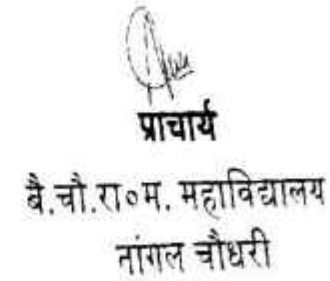 प्राचार्य
बै.चौ.रा०म. महाविद्यालय
नांगल चौधरी